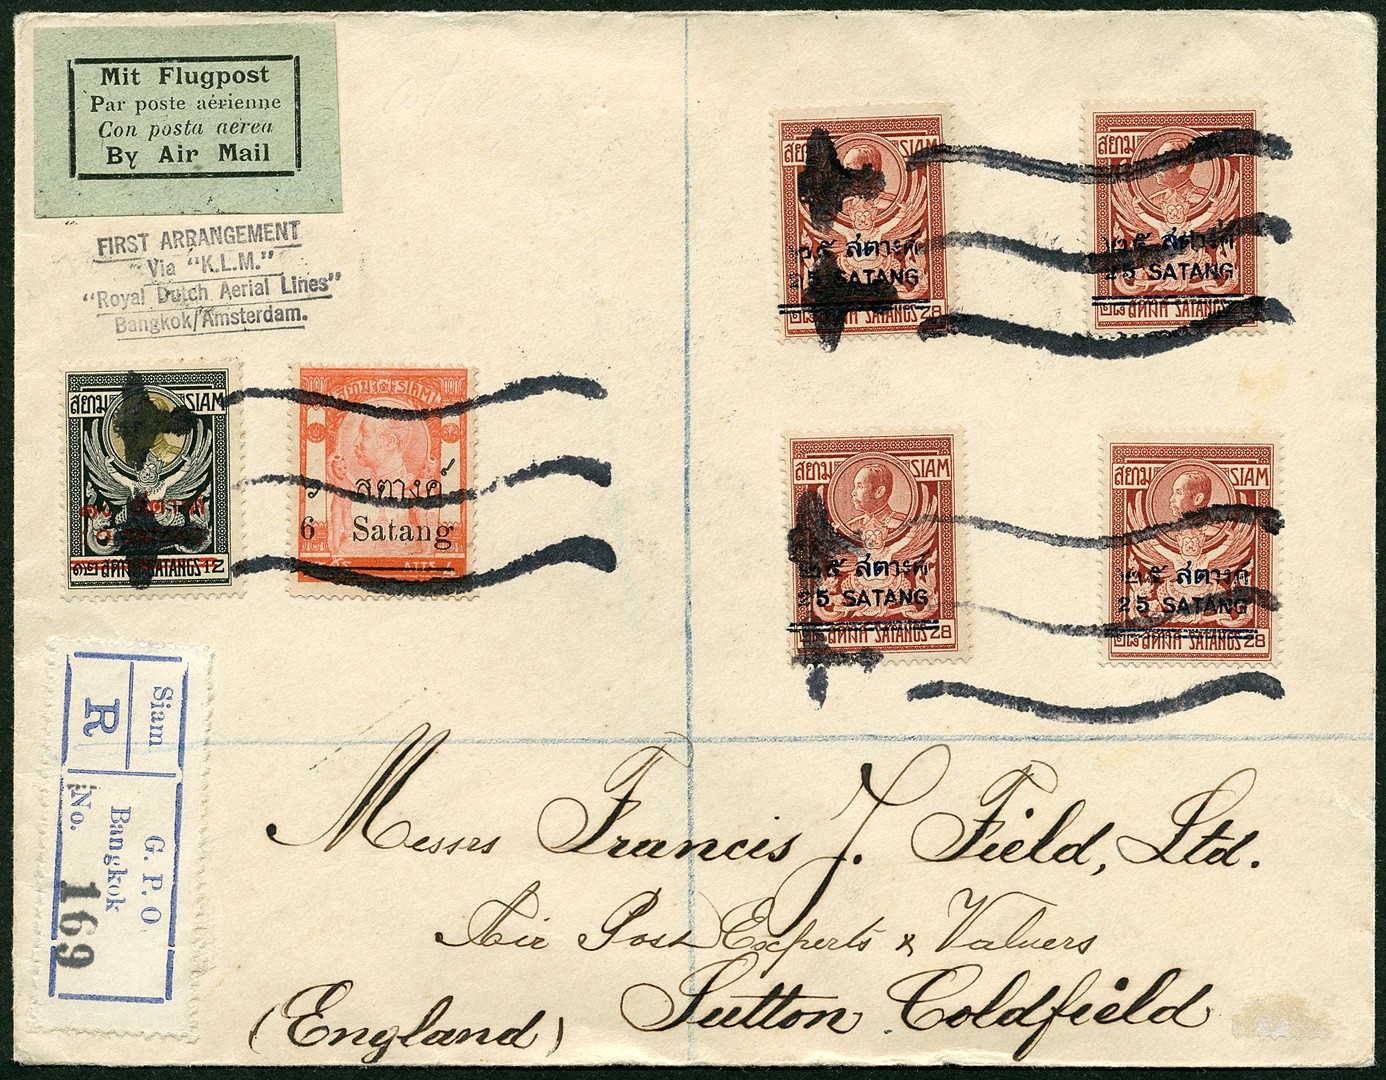 Mit Flugpost
Par poste aérienne
Con posta aerea
By Air Mail
FIRST ARRANGEMENT
Via "K.L.M."
"Royal Dutch Aerial Lines"
Bangkok/Amsterdam.
สยาม SIAM
๒๕ สตางค์
25 SATANG
๒๘ สตางค์ SATANGS 28
สยาม SIAM
๒๕ สตางค์
25 SATANG
๒๘ สตางค์ SATANGS 28
สยาม SIAM
๑๒ สตางค์ SATANGS 12
SIAM
๖ สตางค์
6 Satang
ATTS
สยาม SIAM
๒๕ สตางค์
25 SATANG
๒๘ สตางค์ SATANGS 28
สยาม SIAM
๒๕ สตางค์
25 SATANG
๒๘ สตางค์ SATANGS 28
Siam
R
G. P. O
Bangkok
No. 169
Messrs Francis J. Field, Ltd.
Air Post Experts & Valuers
Sutton Coldfield
(England)